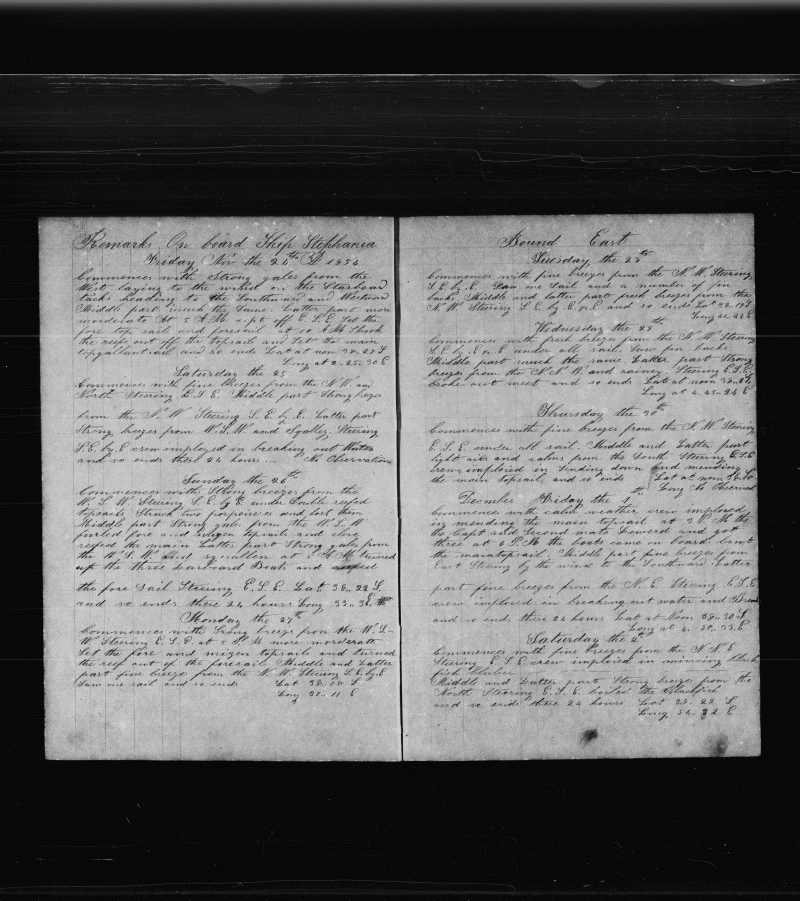 Remarks On board Ship Stephania
Friday Nov the 24th 1854
Commences with Strong gales from the
West laying to the wind on the Starboard
tacks heading to the Southward and Westward
Middle part much the Same. Latter part more
morderate At 5 A.M. sept off E.S.E. Set the
fore top sails and foresail at 10 A.M. Shook
the reefs out off the topsails and Set the main
topgallantsail and so ends Lat at noon 38.27 S
Long at 2.25.30 E
Saturday the 25
Commences with fine breezes from the N.W. and
North Steering E.S.E. Middle part Strong breezes
from the N.W. Steering S.E. by E. Latter part
Strong breezes from W.S.W and Squalley. Steering
S.E. by E crew imployed in breaking out Water
and so ends these 24 hours... No Observation
Sunday the 26th
Commences with Strong breezes from the
W.S.W. Steering S.E. by E. under Double reefed
topsails Struck two porpoises and lost them
Middle part Strong gales from the W.S.W
furled fore and mizen topsails and close
reefed the main Latter part Strong gales from
the W.S.W. and squallen at A.M. turned
up the three larboard Boats and
the fore Sail Steering E.S.E. Lat 38.22 S
and so ends these 24 hours Long 33.36 E
Monday the 27th
Commences with Strong breezes from the W.S.
W Steering E.S.E. at 5 P.M more morderate
Set the fore and mizen topsails and turned
the reef out of the foresail Middle and Latter
part fine breeze from the N.W. Steering S.E. by E
Saw one sail and so ends Lat 38.10 S
Long 37.11 E
Bound East
Tuesday the 28th
Commences with fine breezes from the N.W. Steering
S.E. by E. Saw one Sail and a number of fin
backs. Middle and latter part fresh breezes from the
N.W. Steering S.E. by E. E and so ends Lat 38.19 S
Long 41.22 E
Wednesday the 29th
Commences with fresh breezes from the N.W. Steering
S.E. by E. E under all sail. Saw fin backs.
Middle part much the same Latter part Strong
breezes from the N.N.W. and rainey. Steering E.S.E.
broke out meet and so ends Lat at noon
Long at 4.45.24 E
Thursday the 30th
Commences with fine breezes from the N.W. Steering
E.S.E. under all sail. Middle and Latter part
light airs and calms from the South Steering E.S.E
crew imploied in Sending down and mending
the main topsail and so ends Lat at noon
Long No Observed
December Friday the 1st
Commences with calm weather crew imployed
in mending the main topsail at 3 P.M. the
Capt sold Second mate and got
three at 6 P.M the boats came on board bent
the maintopsail. Middle part fine breezes from
East Steering by the wind to the Southward. Latter
part fine breezes from the N.E. Steering E.S.E.
crew imploied in breaking out water and Bread
and so ends these 24 hours Lat at Noon 39.30 S
Long at 4. 50.33 E
Saturday the 2d
Commences with fine breezes from the N N E
Steering E.S.E crew imploied in mincing black
fish blubber
Middle and Latter part Strong breezes from the
North Steering E.S.E. boiled the Blackfish
and so ends these 24 hours Lat 39.28 S
Long 54.22 E